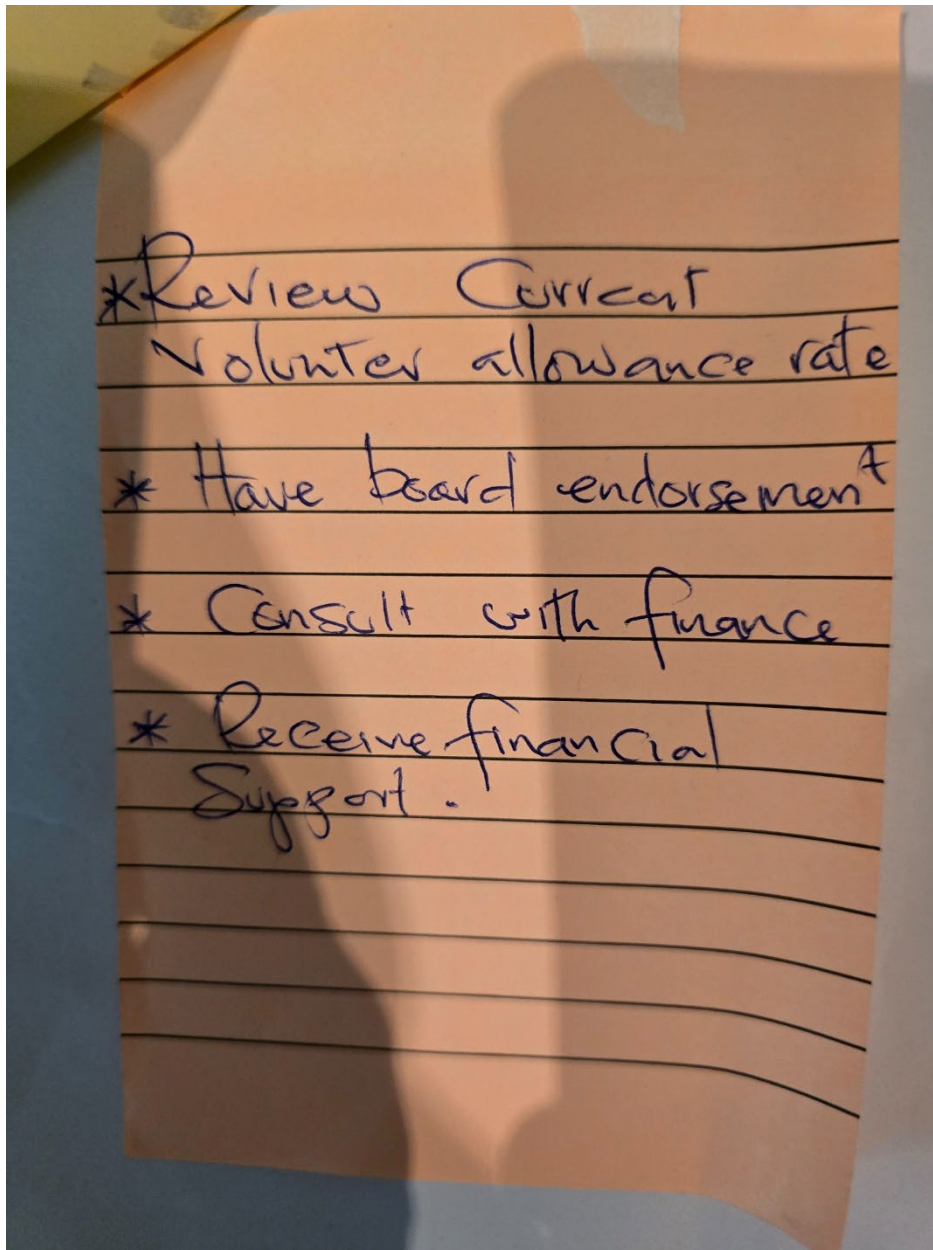 *Review Current
Volunter allowance rate
* Have board endorsement
* Consult with finance
* Receive financial
Support.